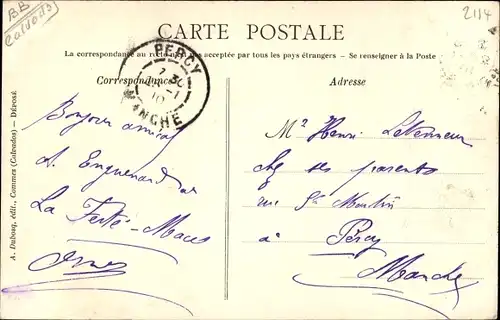 BB
Calvados
2114
CARTE POSTALE
La correspondance au recto n'est pas acceptée par tous les pays étrangers – Se renseigner à la Poste
Correspondance
Adresse
PERCY
7 30
10
MANCHE
Bonjour amical
A. Enguerrand
La Ferté-Macé
Mr Henri Letenneur
chez ses parents
rue St Martin
à Percy
Manche
A. Dubosq, édit., Commes (Calvados) – DÉPOSÉ